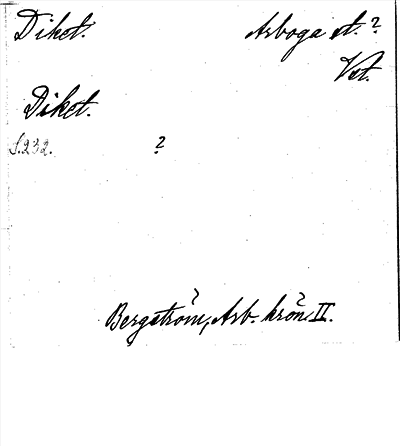 Diket. Arboga st. ?
Vst.
Diket.
S.232. ?
Bergström, Arb. krön. II.